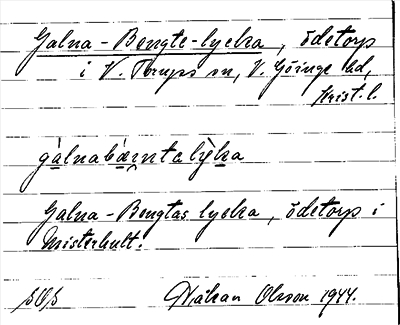 Galna-Bengte-lycka, ödetorp
i V. Torups sn, V. Göinge hd,
Krist. l.
gàlnabæ̀ntalỳka
Galna-Bengtas lycka, ödetorp i
Misterhult.
Håkan Olsson 1944.